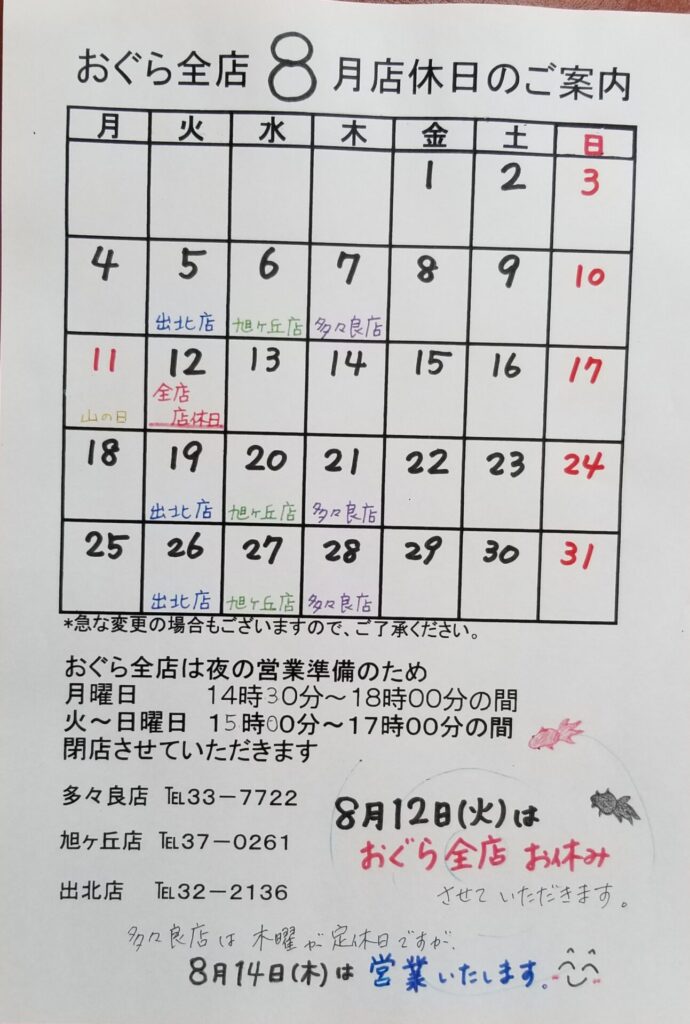 おぐら全店 8 月店休日のご案内
月 火 水 木 金 土 日
1 2 3
4 5 6 7 8 9 10
出北店 旭ヶ丘店 多々良店
11 12 13 14 15 16 17
山の日 全店
店休日
18 19 20 21 22 23 24
出北店 旭ヶ丘店 多々良店
25 26 27 28 29 30 31
出北店 旭ヶ丘店 多々良店
*急な変更の場合もございますので、ご了承ください。
おぐら全店は夜の営業準備のため
月曜日 14時30分～18時00分の間
火～日曜日 15時00分～17時00分の間
閉店させていただきます
多々良店 ℡33－7722
旭ヶ丘店 ℡37－0261
出北店 ℡32－2136
8月12日(火)は
おぐら全店 お休み
させていただきます。
多々良店は木曜が定休日ですが、
8月14日(木)は営業いたします。